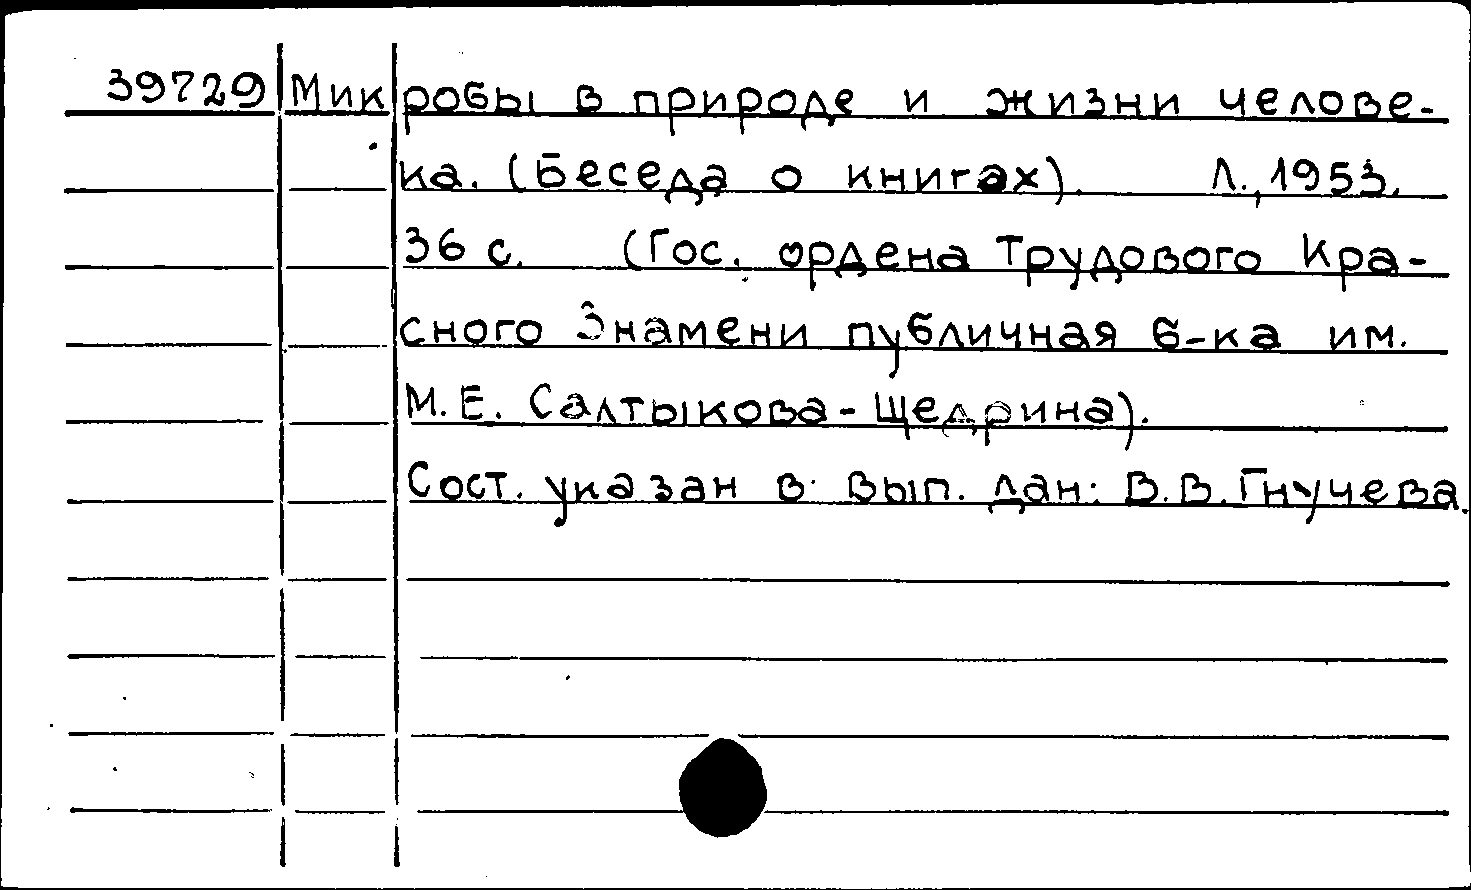 39729 Микробы в природе и жизни челове-
ка. (Беседа о книгах). Л., 1953.
36 с. (Гос. ордена Трудового Кра-
сного Знамени публичная б-ка им.
М.Е. Салтыкова-Щедрина).
Сост. указан в вып. дан: В.В. Гнучева.